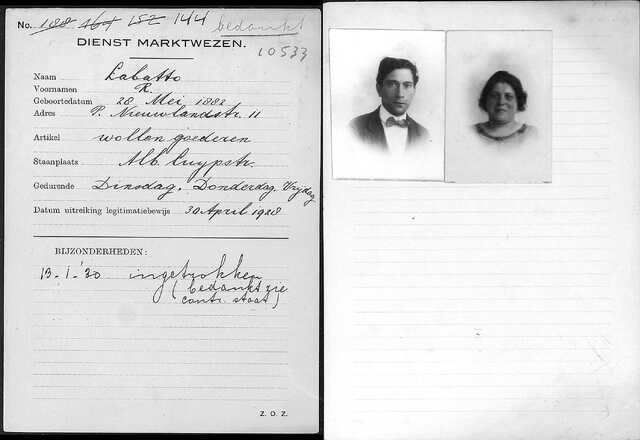 No. 188 164 152 144 bedankt
DIENST MARKTWEZEN.
10533
Naam Labatto
Voornamen R.
Geboortedatum 28 Mei 1882
Adres P. Nieuwlandstr. 11
Artikel wollen goederen
Staanplaats Alb. Cuypstr.
Gedurende Dinsdag, Donderdag, Vrijdag
Datum uitreiking legitimatiebewijs 30 April 1928
BIJZONDERHEDEN:
13-1-'30 ingetrokken
(bedankt zie
contr. staat)
Z. O. Z.